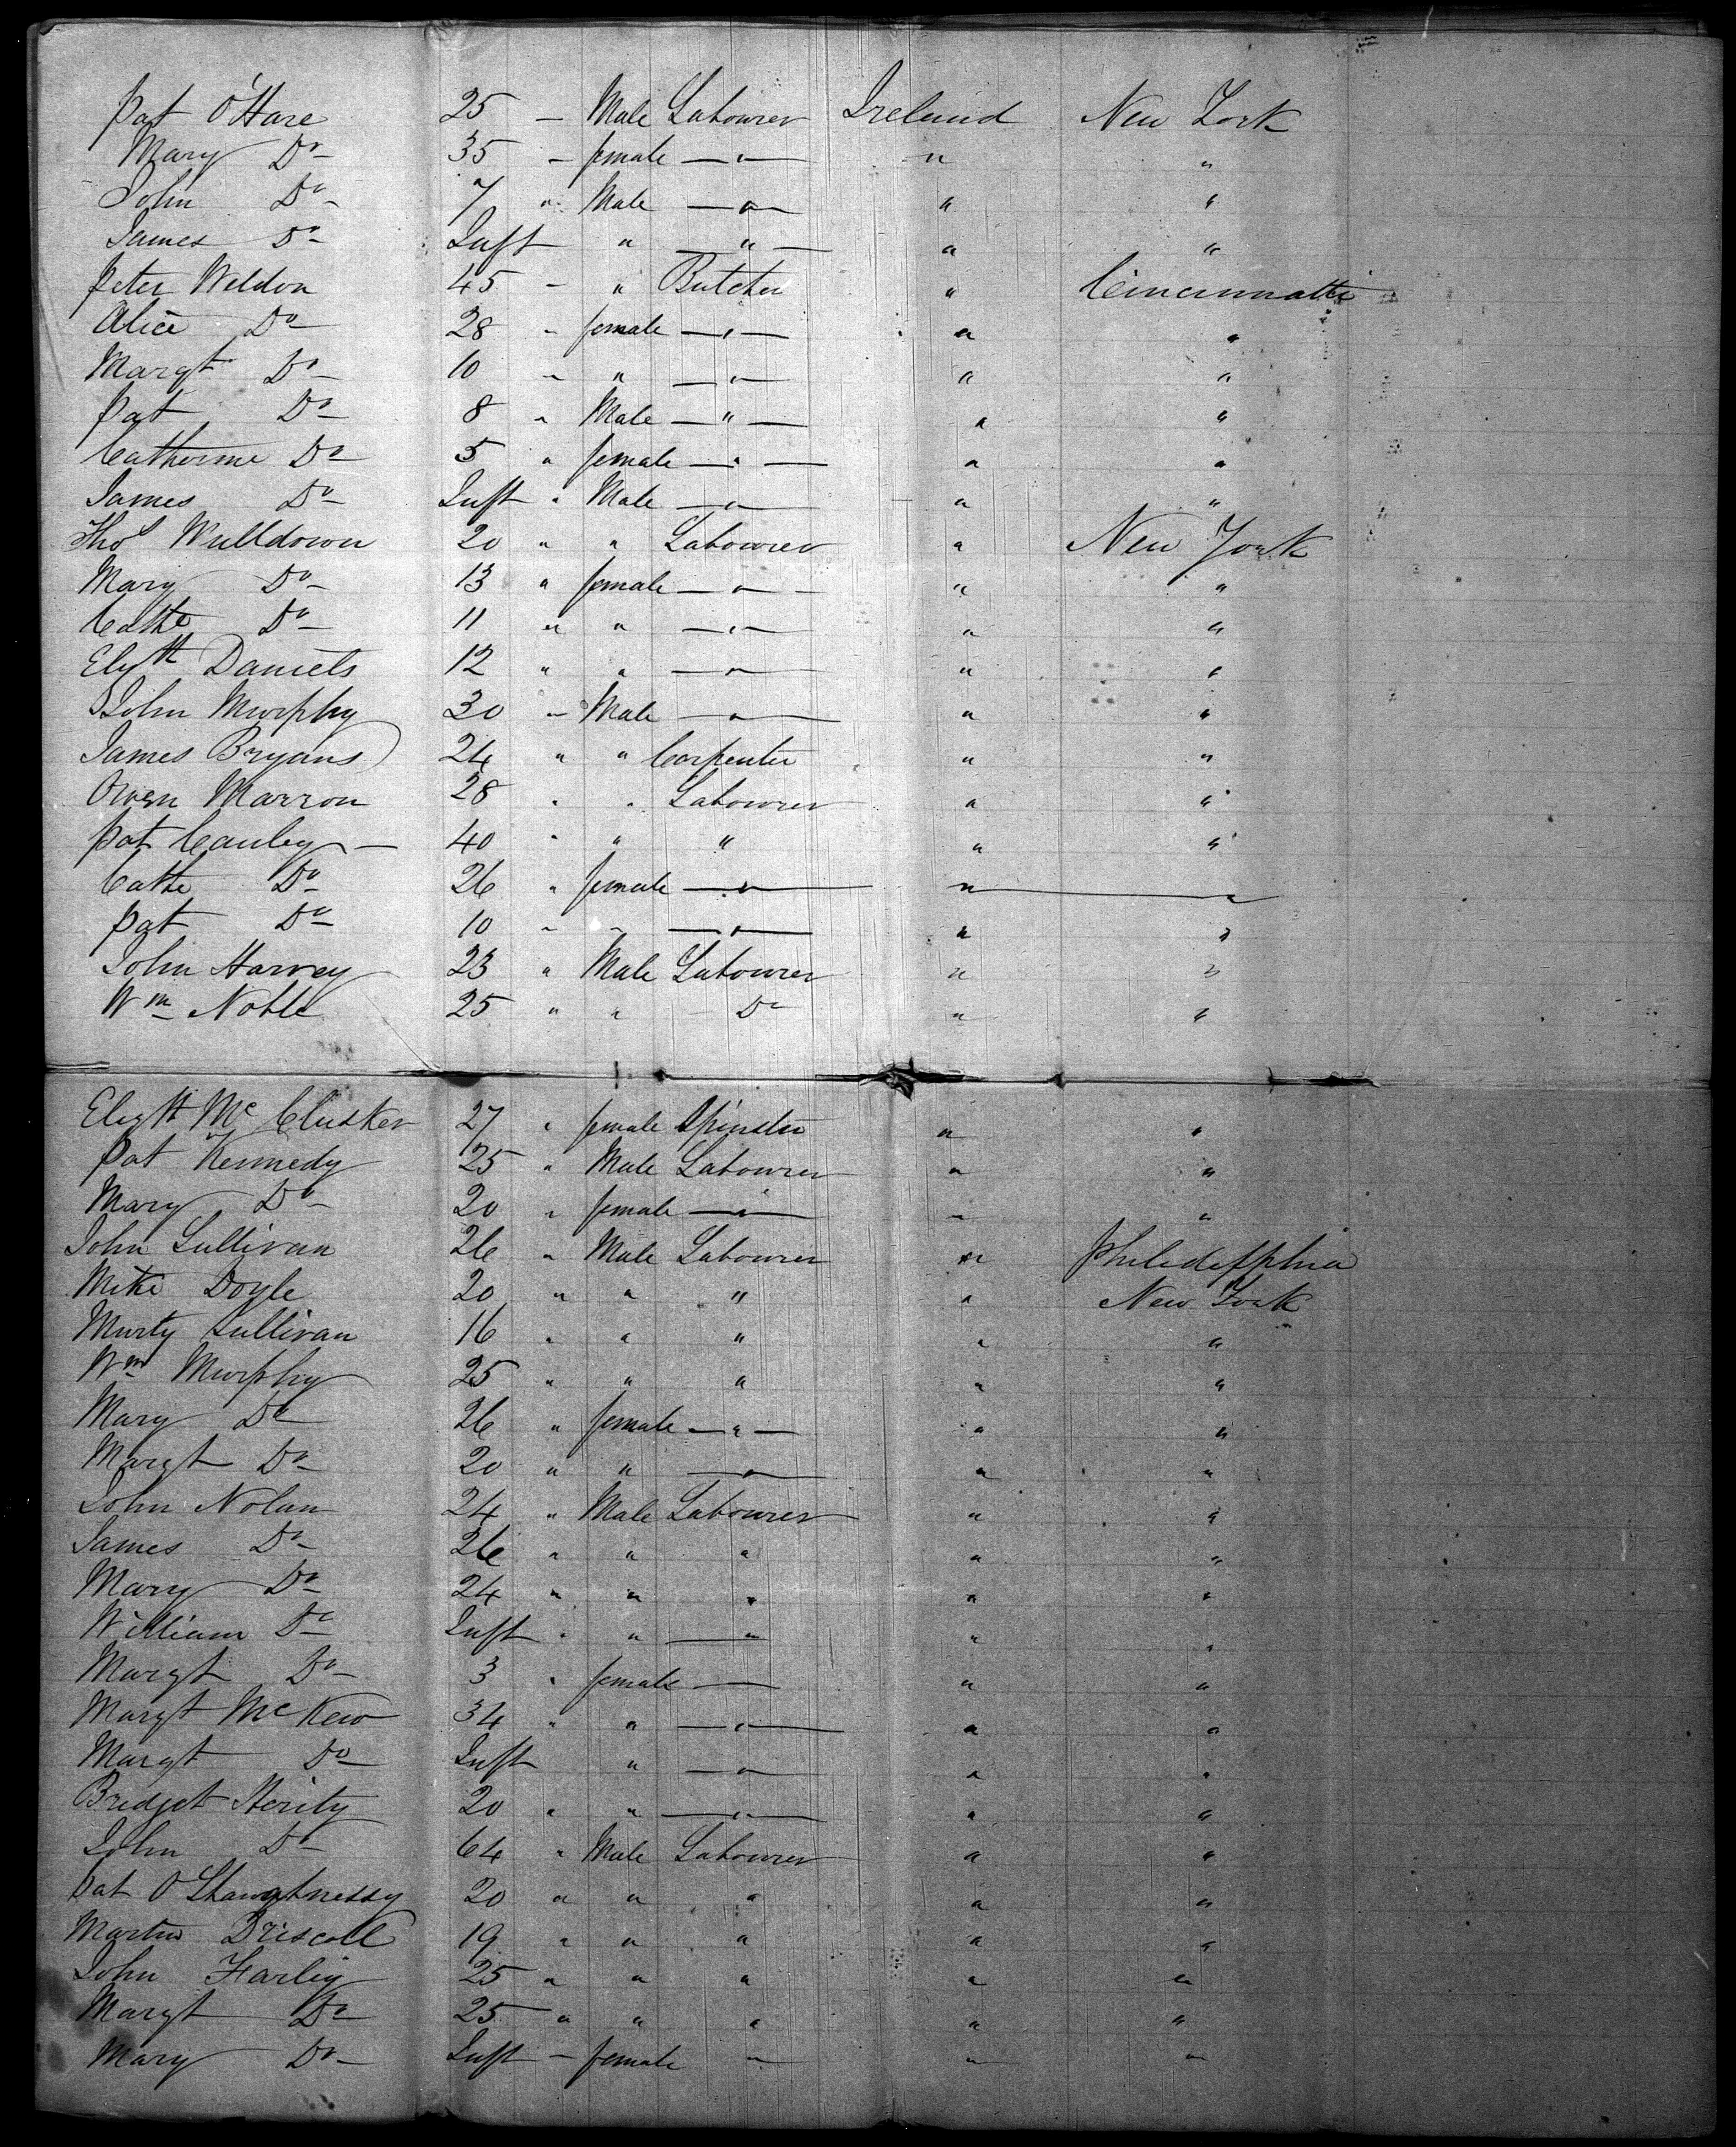 Pat O'Hare 25 – Male Labourer Ireland New York
Mary Do 35 – female — " — " "
John Do 7 " Male — " — " "
James Do Inft " — " — " "
Peter Weldon 45 – " Butcher " Cincinnatti
Alice Do 28 " female — " — " "
Margt Do 10 " " — " — " "
Pat Do 8 " Male — " — " "
Catherine Do 5 " female — " — " "
James Do Inft " Male — " — " "
Thos Wulldown 20 " " Labourer " New York
Mary Do 13 " female — " — " "
Cathe Do 11 " " — " — " "
Elyth Daniels 12 " " — " — " "
John Murphy 30 – Male — " — " "
James Bryans 24 " " Carpenter " "
Owen Marron 28 " " Labourer " "
Pat Cauley — 40 " " " " "
Cathe Do 26 " female — " — " "
Pat Do 10 " " — " — " "
John Harvey 23 " Male Labourer " "
Wm Noble 25 " " Do " "
Elizth McClusker 27 " female Spinster " "
Pat Kennedy 25 " Male Labourer " "
Mary Do 20 " female — " — " "
John Sullivan 26 " Male Labourer " Philidelphia
Mike Doyle 20 " " " " New York
Murty Sullivan 16 " " " " "
Wm Murphy 25 " " " " "
Mary Do 26 " female — " — " "
Margt Do 20 " " — " — " "
John Nolan 24 " Male Labourer " "
James Do 26 " " " " "
Mary Do 24 " " " " "
William Do Inft " " — " — " "
Margt Do 3 " female — " "
Margt McKew 34 " " — " — " "
Margt Do Inft " — " — " "
Bridget Herity 20 " " — " — " "
John Do 64 " Male Labourer " "
Pat O'Shawghnessy 20 " " " " "
Martin Driscoll 19 " " " " "
John Farley 25 " " " " "
Margt Do 25 " " " " "
Mary Do Inft – female " " "